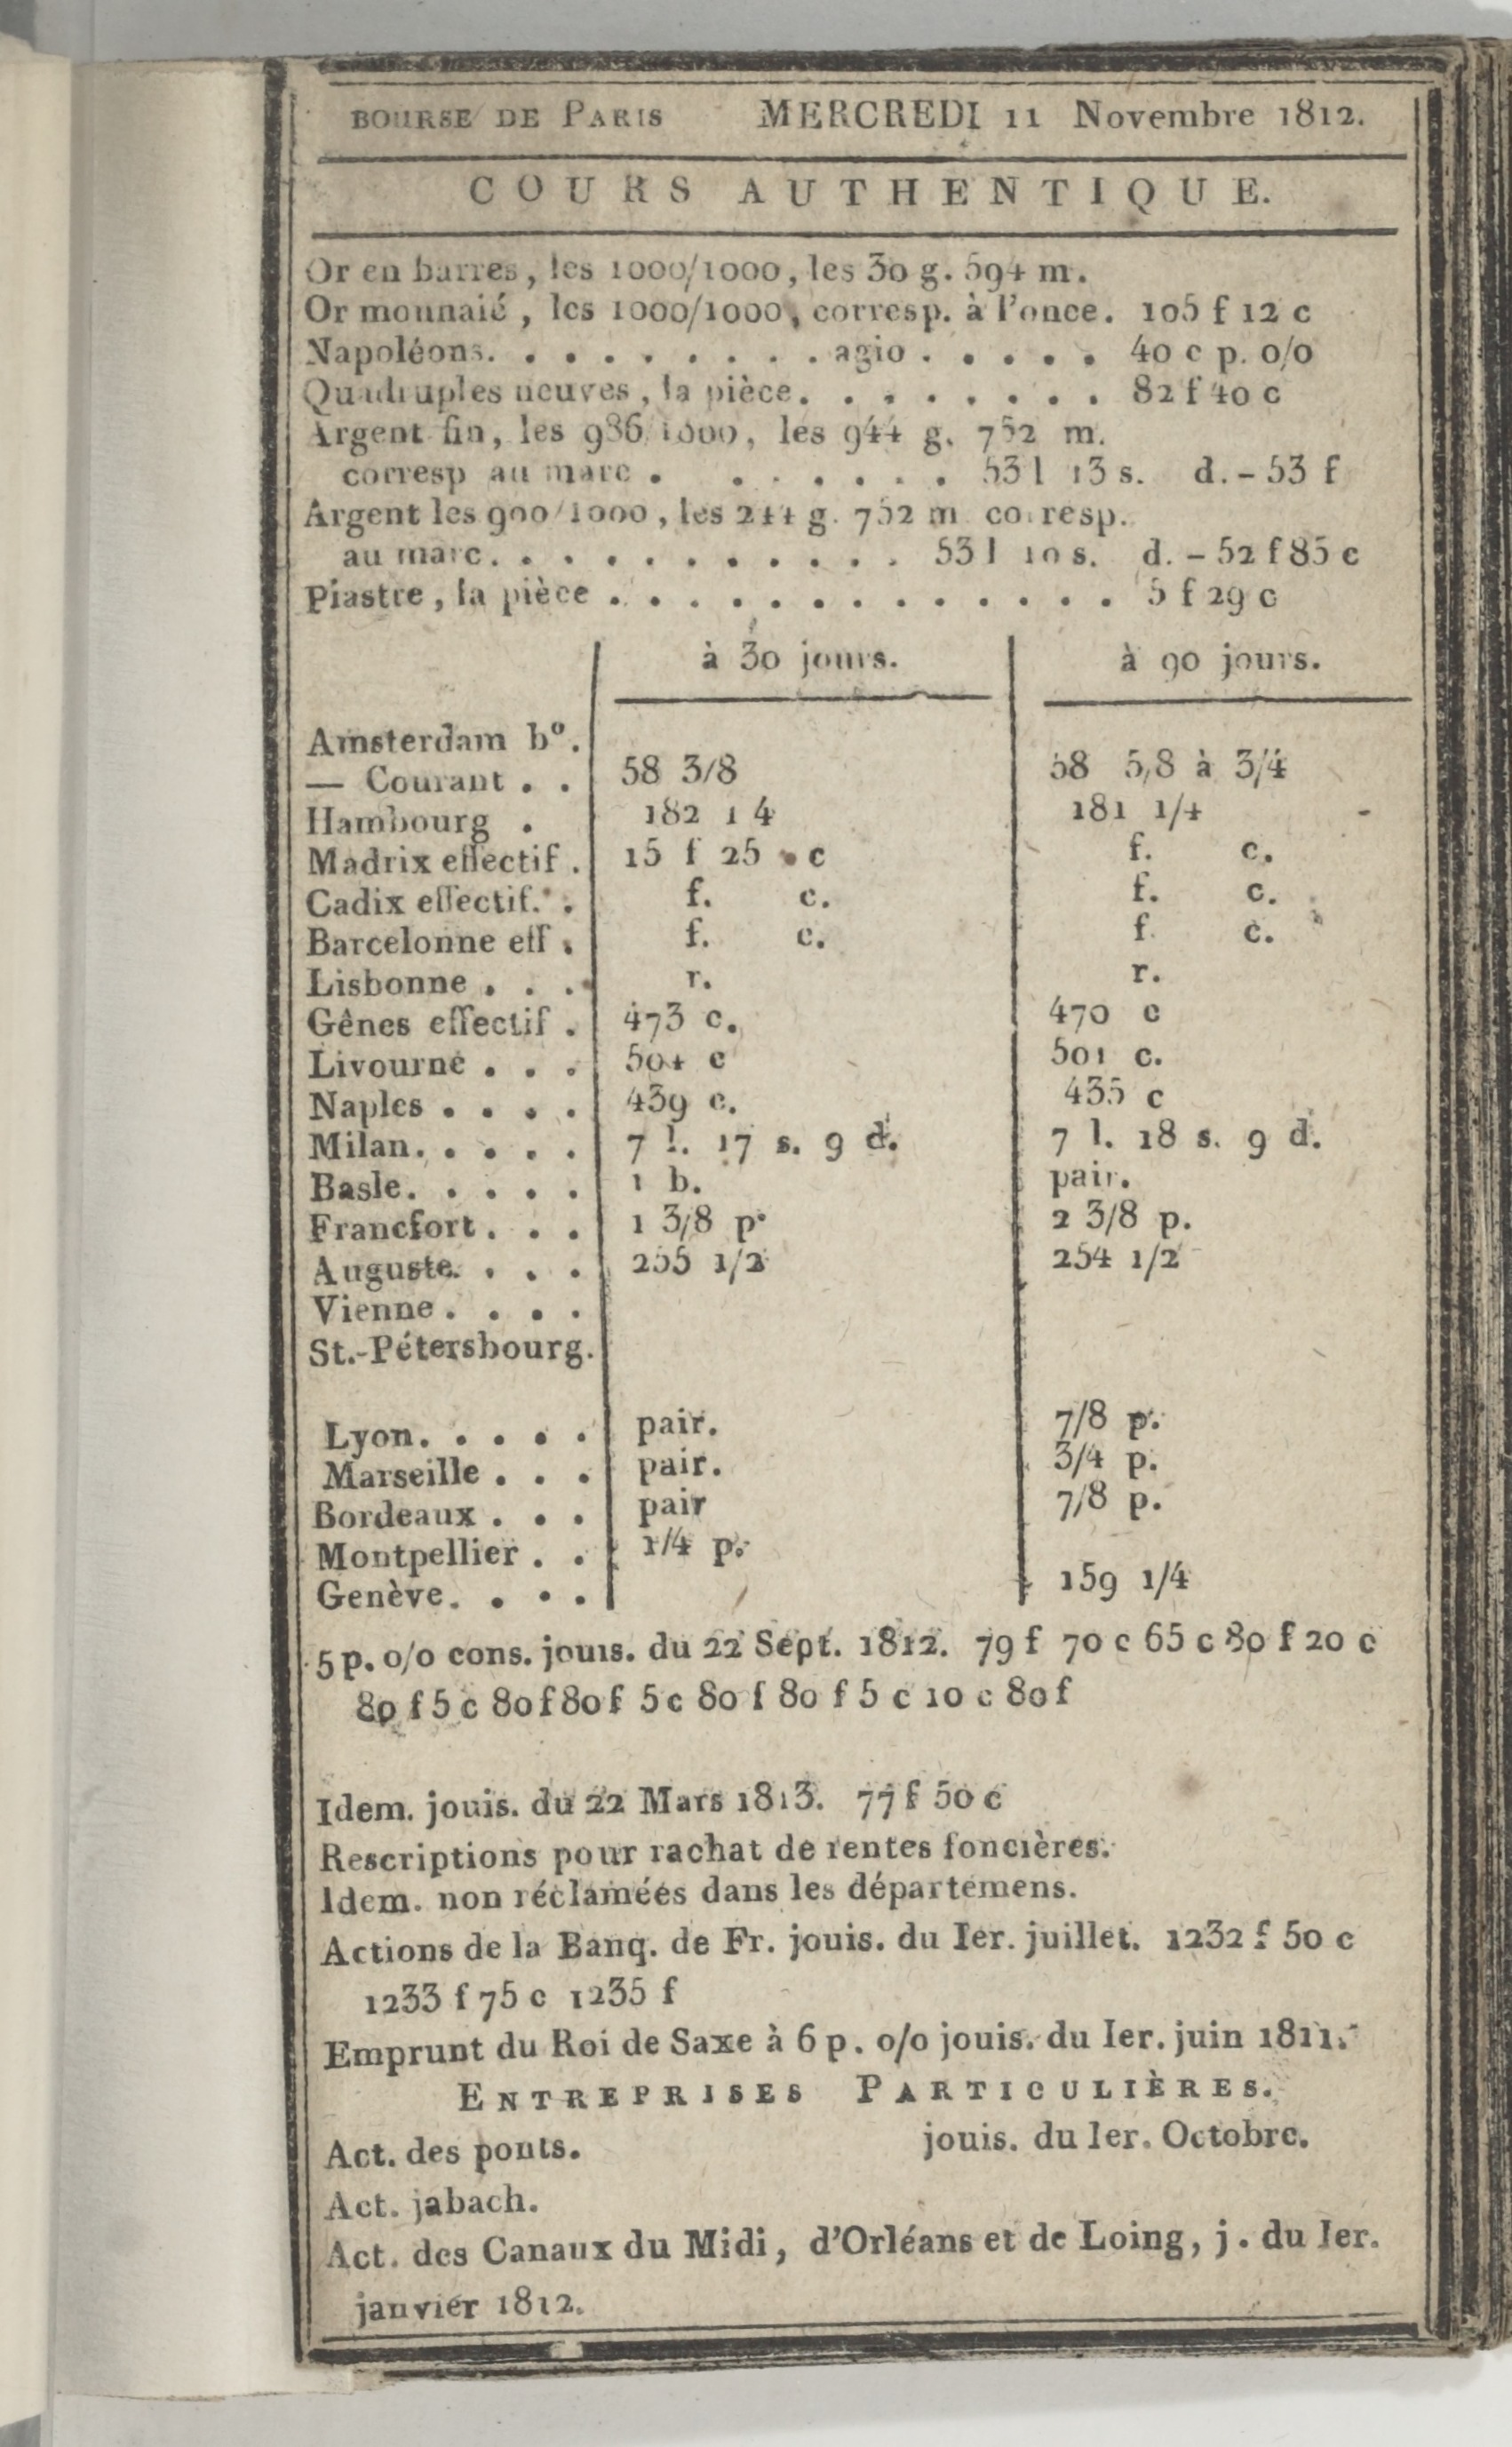 BOURSE DE PARIS MERCREDI 11 Novembre 1812.
COURS AUTHENTIQUE.
Or en barres, les 1000/1000, les 30 g. 594 m.
Or monnaié, les 1000/1000, corresp. à l'once. 105 f 12 c
Napoléons. . . . . . . . . agio . . . . . 40 c p. o/o
Quadruples neuves, la pièce. . . . . . . . 82 f 40 c
Argent fin, les 986/1000, les 944 g. 752 m.
corresp au marc . . . . . . . 53 l 13 s. d. - 53 f
Argent les 900/1000, les 244 g. 752 m corresp.
au marc. . . . . . . . . . . 53 l 10 s. d. - 52 f 85 c
Piastre, la pièce . . . . . . . . . . . . . 5 f 29 c
à 30 jours. à 90 jours.
Amsterdam bº.
— Courant . . 58 3/8 58 5/8 à 3/4
Hambourg . 182 1 4 181 1/4
Madrix effectif . 15 f 25 c f. c.
Cadix effectif. . f. c. f. c.
Barcelonne eff . f. c. f c.
Lisbonne . . . r. r.
Gênes effectif . 473 c. 470 c
Livourne . . . 504 c 501 c.
Naples . . . . 439 c. 435 c
Milan. . . . . 7 l. 17 s. 9 d. 7 l. 18 s. 9 d.
Basle. . . . . 1 b. pair.
Francfort . . . 1 3/8 p. 2 3/8 p.
Auguste. . . . 255 1/2 254 1/2
Vienne . . . .
St.-Pétersbourg.
Lyon. . . . . pair. 7/8 p.
Marseille . . . pair. 3/4 p.
Bordeaux . . . pair 7/8 p.
Montpellier . . 1/4 p.
Genève. . . . 159 1/4
5 p. o/o cons. jouis. du 22 Sept. 1812. 79 f 70 c 65 c 80 f 20 c
80 f 5 c 80 f 80 f 5 c 80 f 80 f 5 c 10 c 80 f
Idem. jouis. du 22 Mars 1813. 77 f 50 c
Rescriptions pour rachat de rentes foncières.
Idem. non réclamées dans les départemens.
Actions de la Banq. de Fr. jouis. du Ier. juillet. 1232 f 50 c
1233 f 75 c 1235 f
Emprunt du Roi de Saxe à 6 p. o/o jouis. du Ier. juin 1811.
ENTREPRISES PARTICULIÈRES.
Act. des ponts. jouis. du Ier. Octobre.
Act. jabach.
Act. des Canaux du Midi, d'Orléans et de Loing, j. du Ier.
janvier 1812.